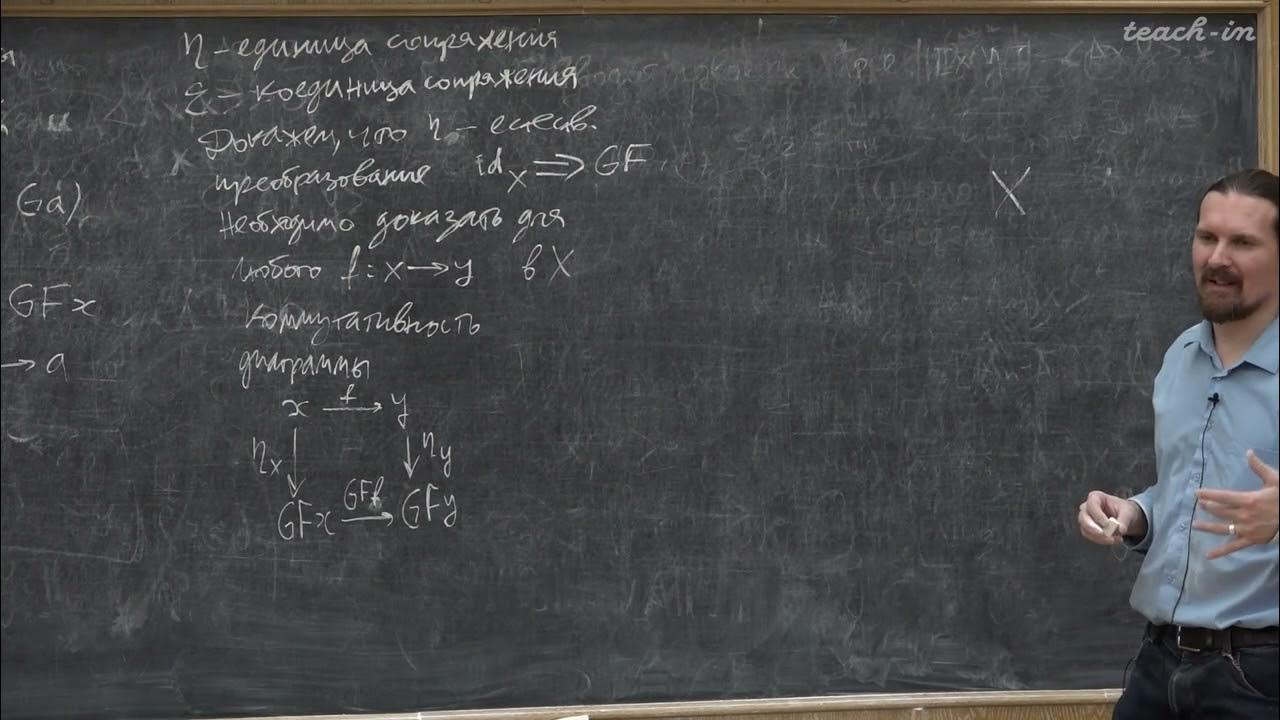 teach-in
η – единица сопряжения
ε – коединица сопряжения
Докажем, что η – естеств.
преобразование id_X ⟹ GF
Необходимо доказать для
любого f : x → y в X
коммутативность
диаграммы
x —f→ y
η_x ↓ ↓ η_y
GFx —GFf→ GFy
Ga)
GFx
→ a
X